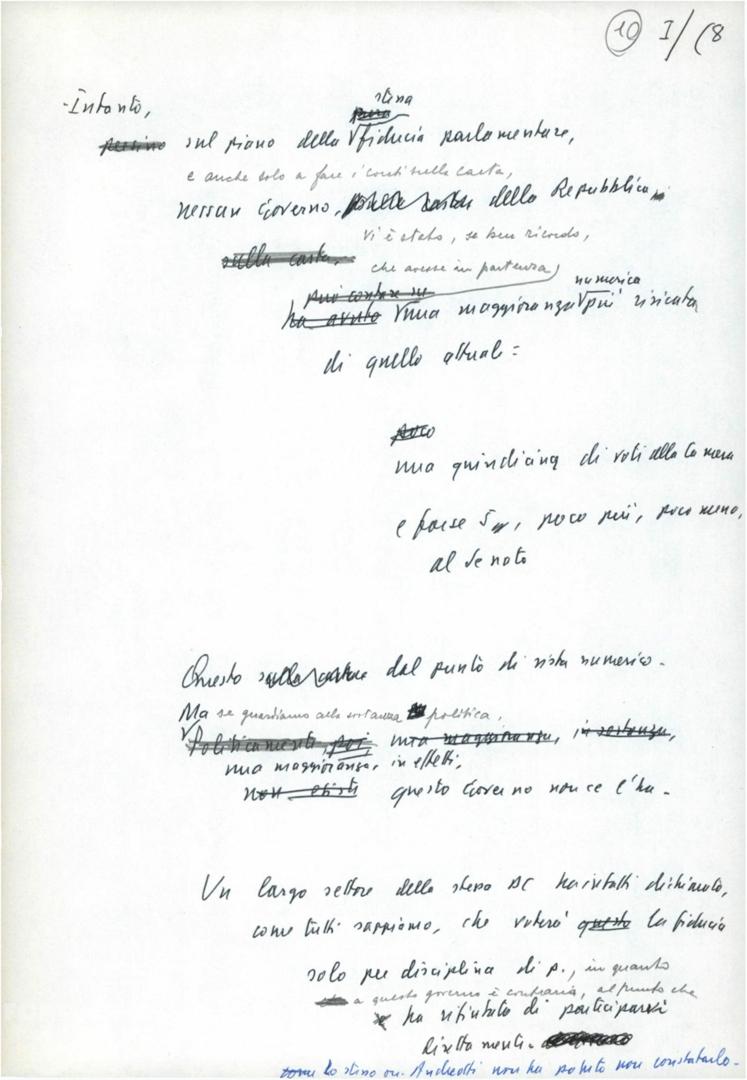 10 I/(8
- Intanto,
stessa
persino sul piano della fiducia parlamentare,
e anche solo a fare i conti sulla carta,
nessun Governo, della Repubblica
vi è stato, se ben ricordo,
sulla carta,
che avesse in partenza
numerica
può contare su
ha avuto una maggioranza più risicata
di quello attuale:
poco
una quindicina di voti alla Camera
e forse 5, poco più, poco meno,
al Senato
Questo dal punto di vista numerico.
Ma se guardiamo alla sostanza politica,
Politicamente poi, una maggioranza, in sostanza,
una maggioranza, in effetti,
non esiste questo Governo non ce l'ha.
Un largo settore della stessa DC ha infatti dichiarato,
come tutti sappiamo, che voterà questo la fiducia
solo per disciplina di p., in quanto
a questo governo è contraria, al punto che
ha rifiutato di parteciparvi
direttamente.
come lo stesso on. Andreotti non ha potuto non constatarlo.